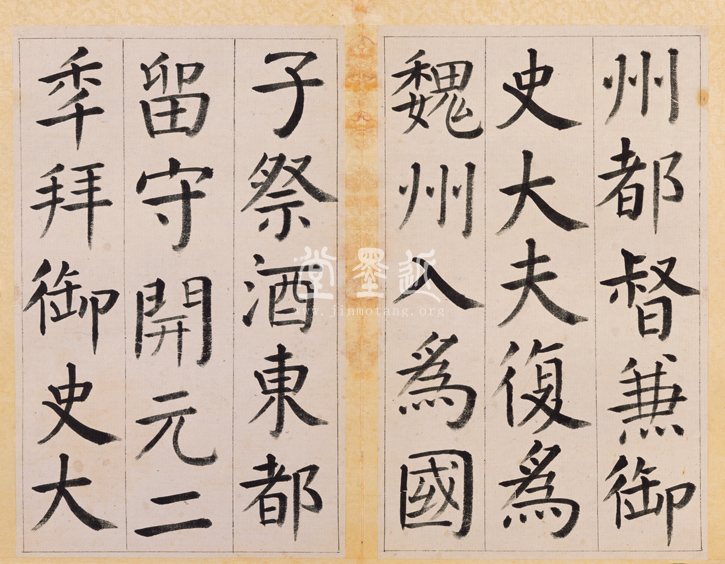 州都督兼御
史大夫復爲
魏州入爲國
子祭酒東都
留守開元二
秊拜御史大
越墨堂
www.jinmotang.org